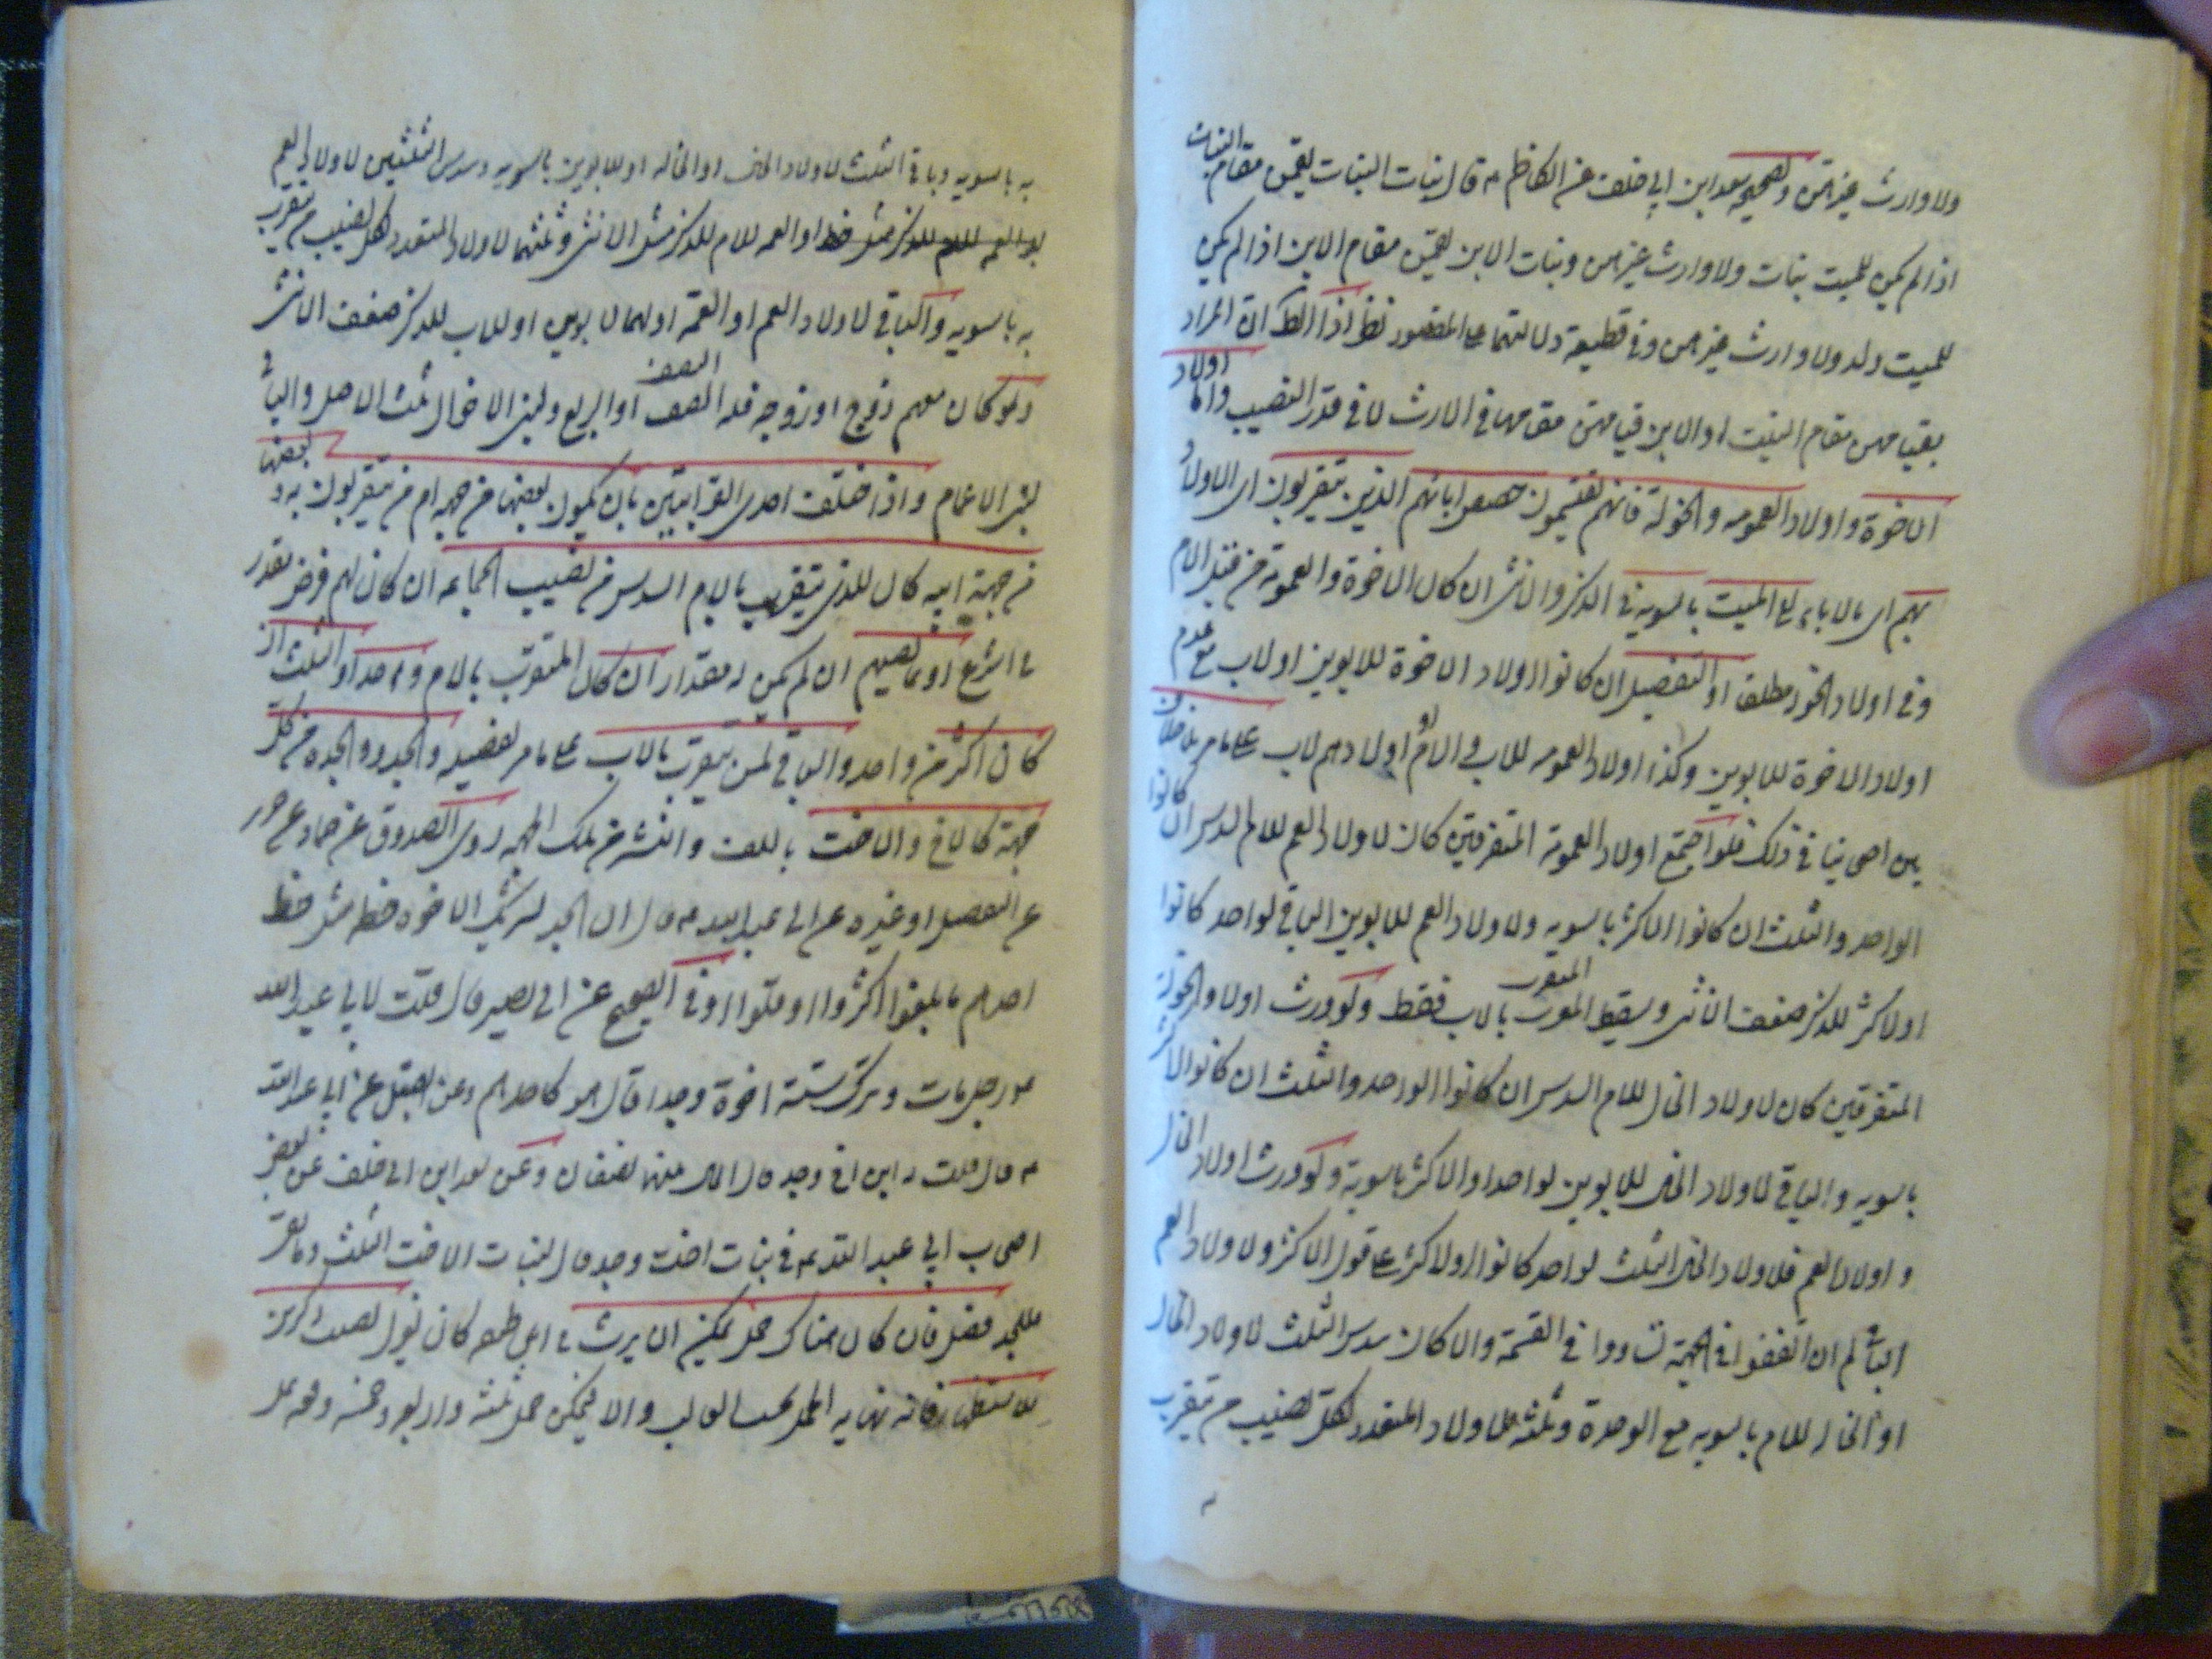 ولا وارث غيرهن وصحيحه سعد ابن ابي خلف عن الكاظم ع قال بنات البنات يقمن مقام البنات
اذا لم يكن للميت بنات ولا وارث غيرهن وبنات الابن يقمن مقام الابن اذا لم يكن
للميت ولد ولا وارث غيرهن وفي قطعية دلالتهما على المقصود نظر اذ الظ ان المراد
بقيامهن مقام البنت او الابن قيامهن مقامهما في الارث لا في قدر النصيب واما اولاد
الاخوة واولاد العمومه والخولة فانهم يقتسمون حصص ابائهم الذين يتقربون اى الاولاد
بهم اى بالاباء الى الميت بالسويه في الذكر والانثى ان كان الاخوة والعمومة من قبل الام
وفي اولاد الخوله مطلقا او التفضيل ان كانوا اولاد الاخوة للابوين او لاب مع عدم
اولاد الاخوة للابوين وكذا اولاد العمومه للاب والام او اولادهم لاب على ما مر بلا خلاف
بين اصحابنا في ذلك فلو اجتمع اولاد العمومة المتفرقين كان لاولاد العم للام السدس ان كانوا
لواحد والثلث ان كانوا لاكثر بالسويه ولاولاد العم للابوين الباقي لواحد كانوا
او لاكثر للذكر ضعف الانثى وسقط المتقرب بالاب فقط ولو ورث اولاد الخولة
المتفرقين كان لاولاد الخال للام السدس ان كانوا لواحد والثلث ان كانوا لاكثر
بالسويه والباقي لاولاد الخال للابوين لواحد او لاكثر بالسوية ولو ورث اولاد الخال
واولاد العم فلاولاد الخال الثلث لواحد كانوا او لاكثر على قول الاكثر ولاولاد العم
الباقي ثم ان اتفقوا في الجهة تساووا في القسمة والا كان سدس الثلث لاولاد الخال
او الخاله للام بالسويه مع الوحدة وثلثه لاولاد المتعدد لكل نصيب من يتقرب
به بالسويه وباقي الثلث لاولاد الخال او الخاله او للابوين بالسويه وسدس الثلثين لاولاد العم
او العمه للام للذكر مثل الانثى وثلثهما لاولاد المتعدد لكل نصيب من يتقرب
به بالسويه والباقي لاولاد العم او العمة او لهما لابوين او للاب للذكر ضعف الانثى
ولو كان معهم زوج او زوجه فله النصف او الربع ولبنى الاخوال ثلث الاصل والباقي
لبنى الاعمام واذا اختلفت احدى القرابتين بان يكون بعضها من جهة ام من يتقربون به وبعضها
من جهة ابيه كان للذى يتقرب بالام السدس من نصيب الجماعه ان كان لهم فرض مقدر
في الشرع او نصيبهم ان لم يكن له مقدار ان كان المتقرب بالام واحدا والثلث ان
كان اكثر من واحد والباقي لمن يتقرب بالاب على ما مر تفصيله والجد والجدة من كل
جهة كالاخ والاخت من تلك الجهه روى الصدوق عن حماد عن حريز
عن الفضيل او غيره عن ابي عبد الله ع قال ان الجد شريك الاخوه حظه مثل حظ
احدهم ما بلغوا كثروا او قلوا وفي الصحيح عن ابي بصير قال قلت لابي عبد الله
ع رجل مات وترك ستة اخوة وجدا قال هو كاحدهم وعن ابي عبد الله
ع قال قلت له ابن اخ وجد قال المال بينهما نصفان وعن سعد ابن ابي خلف عن بعض
اصحاب ابي عبد الله ع في بنات اخت وجد قال لبنات الاخت الثلث وما بقى
فللجد فصل فان كان هناك حمل يمكن ان يرث